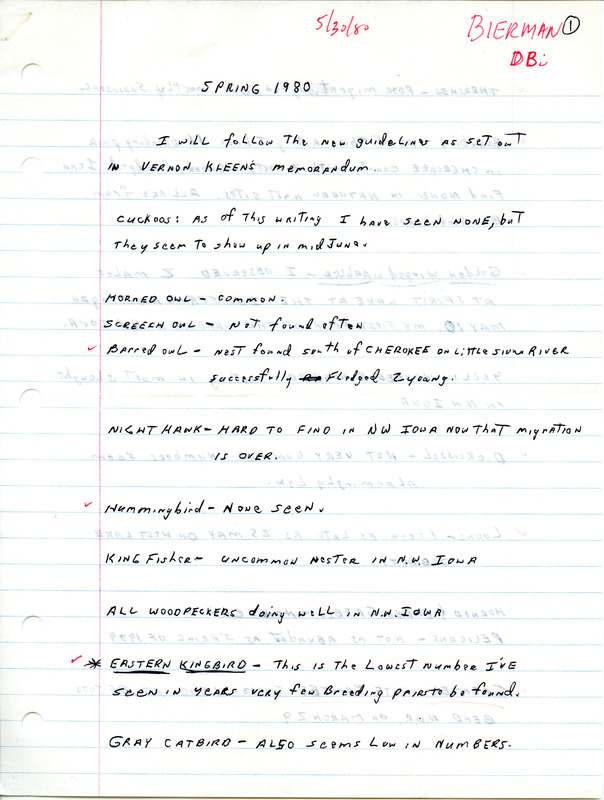 5/30/80
BIERMAN 1
DBi
SPRING 1980
I will follow the new guidelines as set out
in VERNON KLEEN'S memorandum.
CUCKOOS: As of this writing I have seen NONE, but
they seem to show up in mid June.
HORNED OWL - COMMON.
SCREECH OWL - Not found often
✓ Barred owl - nest found south of CHEROKEE on Little Sioux River
successfully Fledged 2 young.
NIGHT HAWK - HARD TO FIND IN NW IOWA NOW that migration
IS OVER.
✓ Hummingbird - None seen.
KING FISHER - UNCOMMON NESTER IN N.W. IOWA
ALL WOODPECKERS doing well in N.W. IOWA
✓ * EASTERN KINGBIRD - This is the Lowest number I'VE
seen in years very few Breeding pairs to be found.
GRAY CATBIRD - ALSO seems Low in NUMBERS.